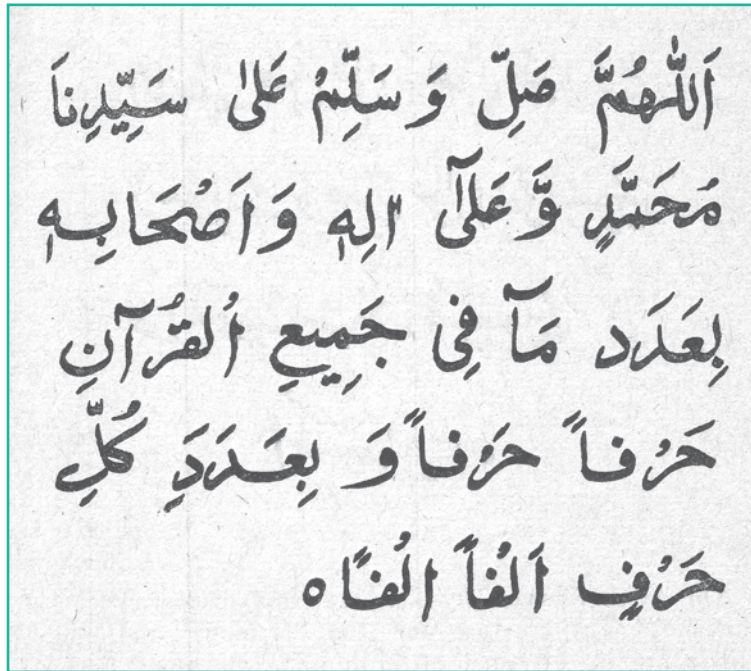 اَللّٰهُمَّ صَلِّ وَ سَلِّمْ عَلیٰ سَیِّدِنَا
مُحَمَّدٍ وَّ عَلیٰٓ اٰلِهٖ وَ اَصْحَابِهٖ
بِعَدَد مَآ فِی جَمِیعِ اُلقُرْآنِ
حَرْفاً حَرْفاً وَ بِعَدَدَِ كُلِّ
حَرْفٍ اَلْفاً اَلْفًا ہ